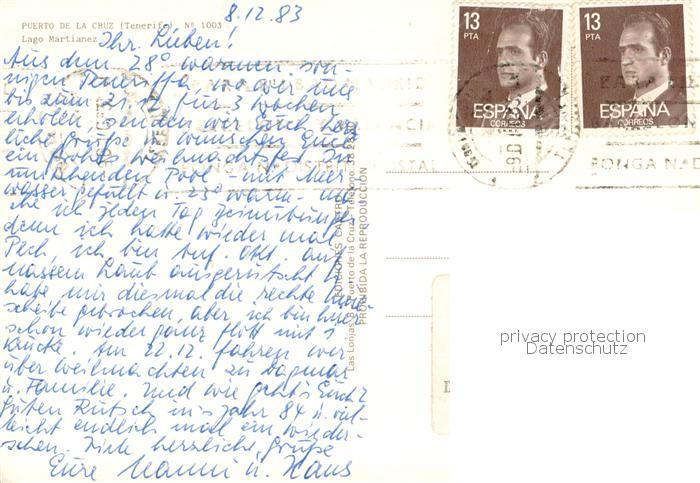 PUERTO DE LA CRUZ (Tenerife) Nº 1003
Lago Martianez
8.12.83
Ihr Lieben!
Aus dem 28° warmen son-
nigen Teneriffa, wo wir uns
bis zum 21.12. für 3 Wochen
erholen, senden wir Euch herz-
liche Grüße u. wünschen Euch
ein frohes Weihnachtsfest. Im
Pool - mit Meer
wasser gefüllt u. 23° warm - ma
che ich jeden Tag
denn ich hatte wieder mal
Pech, ich bin auf
nassem Laub ausgerutscht u.
habe mir diesmal die rechte
scheibe gebrochen, aber ich bin hier
schon wieder ganz flott mit 1
Krücke. Am 22.12. fahren wir
über Weihnachten zu Dagmar
u. Familie. Und wie geht's Euch?
Guten Rutsch ins Jahr 84 u. viel-
leicht endlich mal ein Wieder-
sehen. herzliche Grüße
Eure Hanni u. Hans
EDICIONES
Las Lonjas 8 Puerto de la Cruz Teléfono 38
PROHIBIDA LA REPRODUCCION
13
PTA
ESPAÑA
CORREOS
13
PTA
ESPAÑA
CORREOS
PONGA
privacy protection
Datenschutz